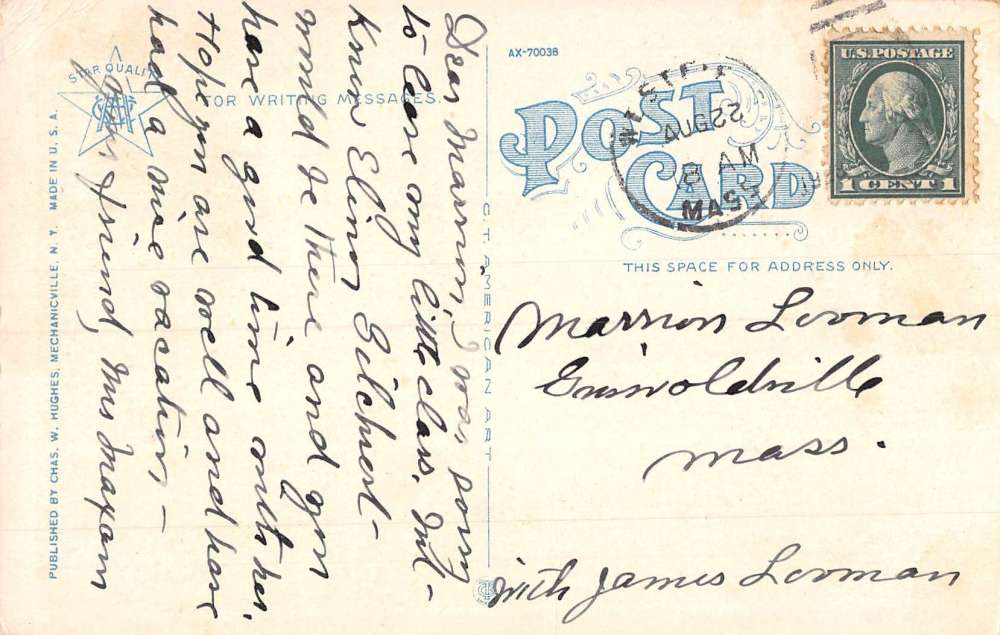 AX-70038
POST
CARD
U.S. POSTAGE
1 CENT 1
AUG 22
8 AM
MASS
THIS SPACE FOR ADDRESS ONLY.
Marrion Looman
Griswoldville
Mass.
with James Looman
FOR WRITING MESSAGES.
Dear Marrion, I was sorry
to leave my little class, but -
knew Elinor Gilchrest -
would be there and you
have a good time with her.
Hope you are well and have
had a nice vacation, -
Your friend, Mrs Maxam
STAR QUALITY
C.T. AMERICAN ART
PUBLISHED BY CHAS. W. HUGHES, MECHANICVILLE, N. Y. MADE IN U. S. A.